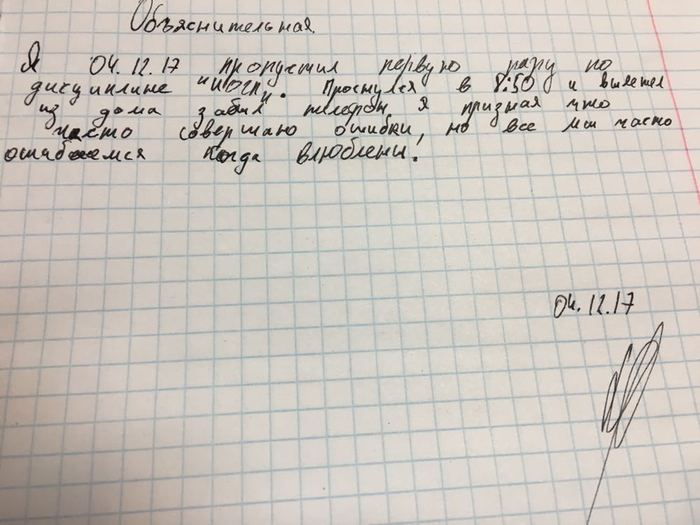 Объяснительная.
Я 04.12.17 пропустил первую пару по
дисциплине "ИОГПУ". Проснулся в 8:50 и вылетел
из дома забыл телефон я признал что
часто совершаю ошибки, но все мы часто
ошибаемся когда влюблены!
04.12.17